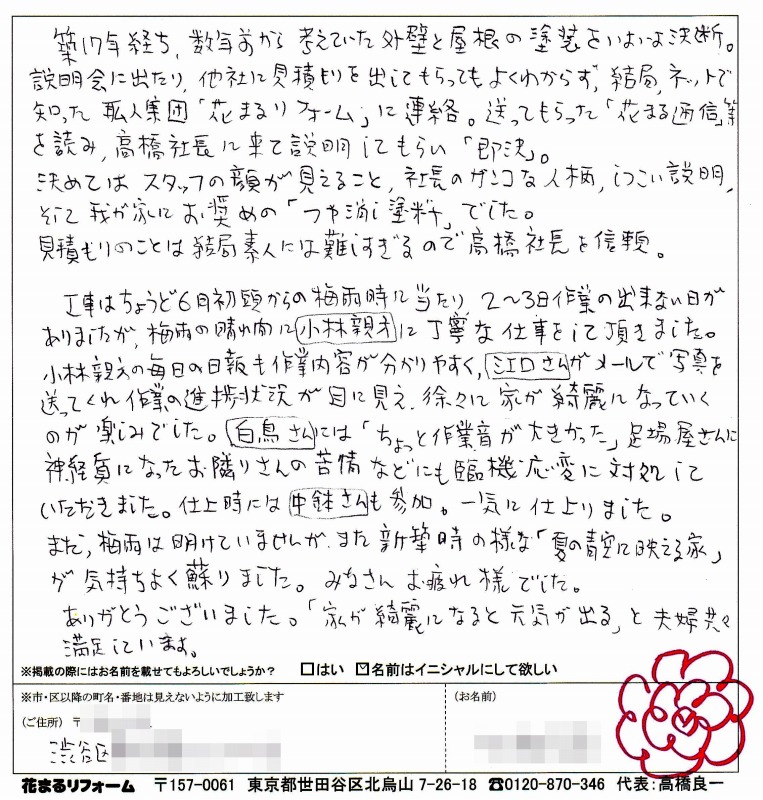 築17年経ち,数年前から考えていた外壁と屋根の塗装をいよいよ決断。
説明会に出たり,他社に見積もりを出してもらってもよくわからず,結局,ネットで
知った職人集団「花まるリフォーム」に連絡。送ってもらった「花まる通信」等
を読み,高橋社長に来て説明してもらい「即決」。
決めてはスタッフの顔が見えること,社長のガンコな人柄,しつこい説明,
そして我が家にお奨めの「つや消し塗料」でした。
見積もりのことは結局素人には難しすぎるので高橋社長を信頼。
工事はちょうど6月初頭からの梅雨時に当たり2~3日作業の出来ない日が
ありましたが,梅雨の晴れ間に小林親方に丁寧な仕事をして頂きました。
小林親方の毎日の日報も作業内容が分かりやすく,江口さんがメールで写真を
送ってくれ作業の進捗状況が目に見え,徐々に家が綺麗になっていく
のが楽しみでした。白鳥さんには「ちょっと作業音が大きかった」足場屋さんに
神経質になったお隣りさんの苦情などにも臨機応変に対処して
いただきました。仕上時には中鉢さんも参加。一気に仕上りました。
まだ,梅雨は明けていませんが,また新築時の様な「夏の青空に映える家」
が気持ちよく蘇りました。みなさんお疲れ様でした。
ありがとうございました。「家が綺麗になると元気が出る」と夫婦共々
満足しています。
※掲載の際にはお名前を載せてもよろしいでしょうか? □はい ☑名前はイニシャルにして欲しい
※市・区以降の町名・番地は見えないように加工致します
(お名前)
(ご住所) 〒
渋谷区
花まるリフォーム 〒157-0061 東京都世田谷区北烏山 7-26-18 ☎0120-870-346 代表:高橋良一